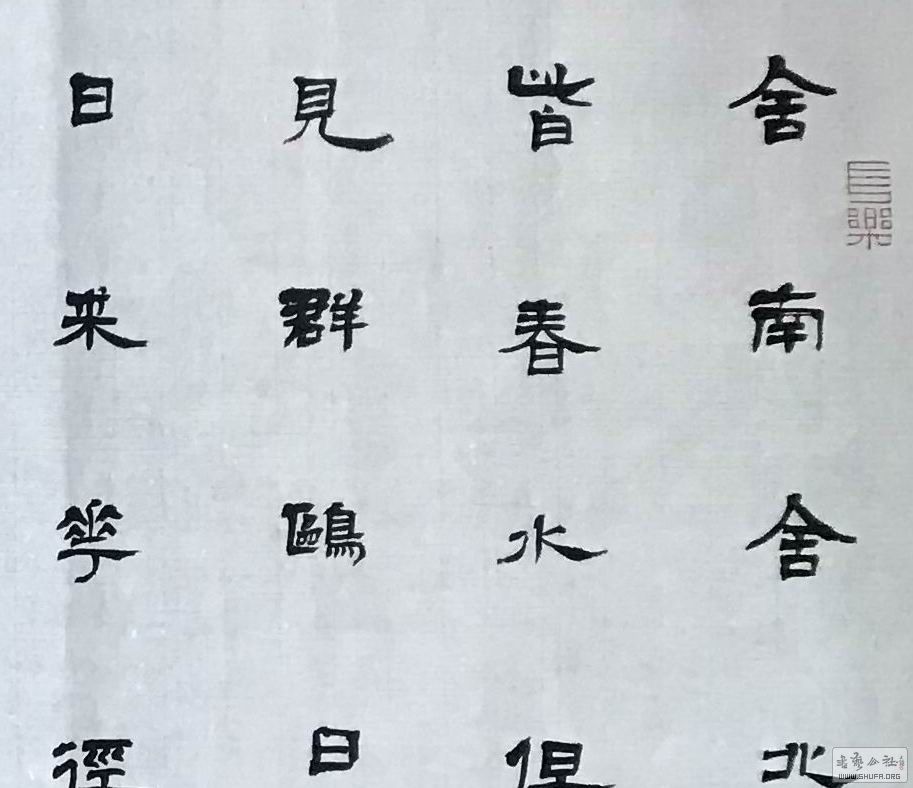 舍南舍北
皆春水但
見群鷗日
日来花徑
書藝公社
WWW.SHUFA.ORG